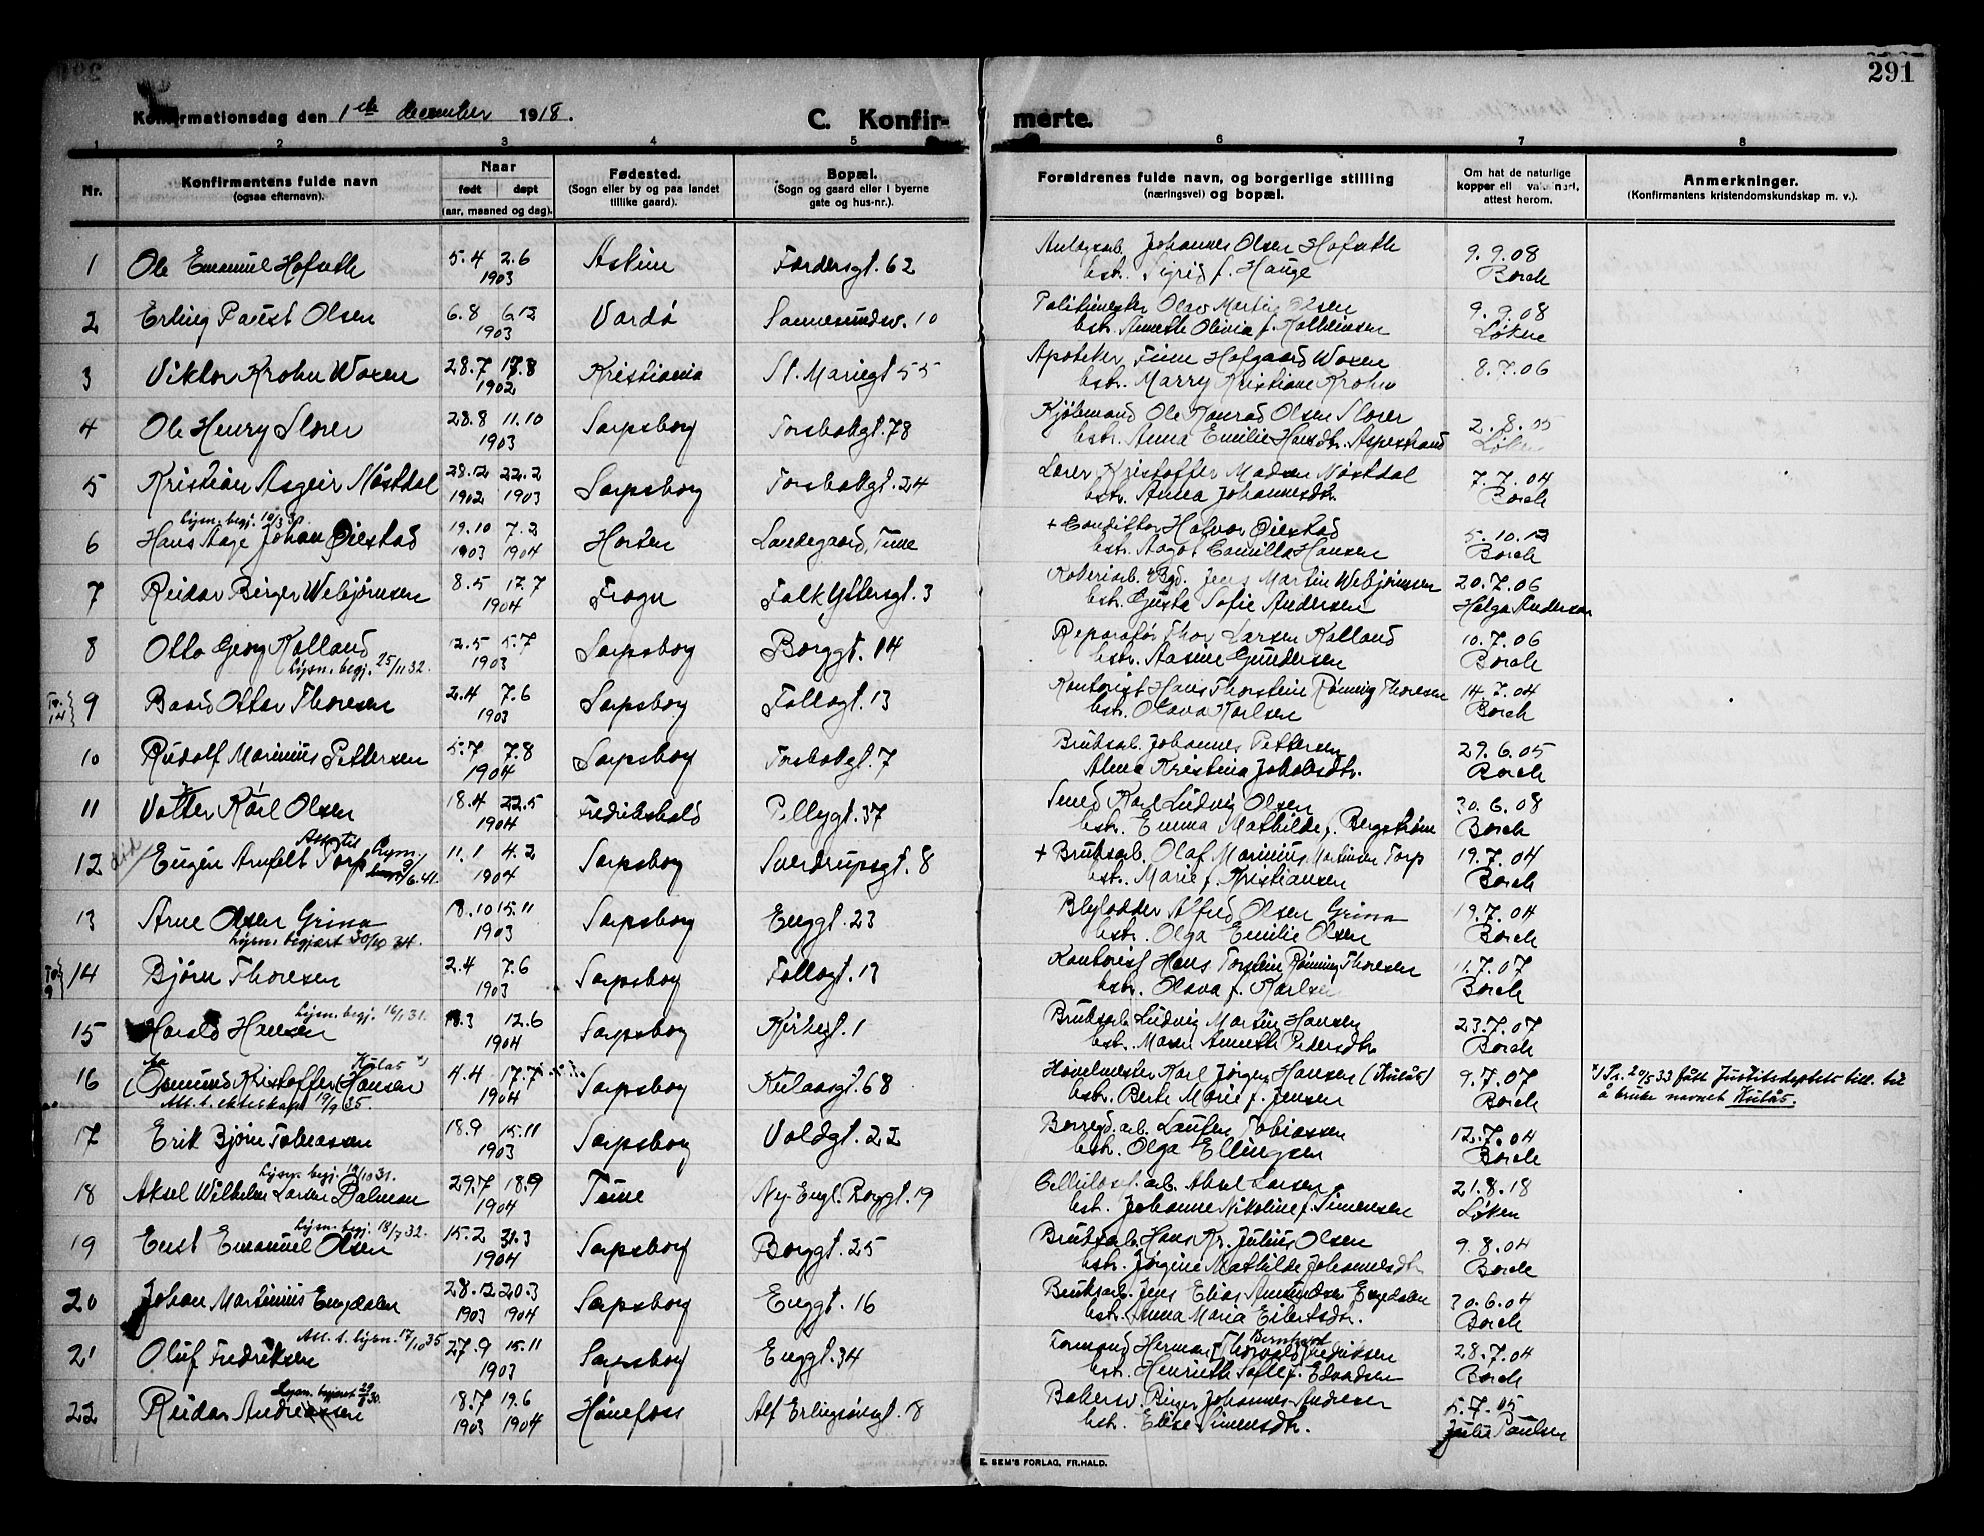 291
Konfirmationsdag den 1ste december 1918.
C. Konfir- merte.
1 2 3 4 5 6 7 8
Nr.
Konfirmantens fulde navn
(ogsaa efternavn).
Naar
født døpt
(aar, maaned og dag).
Fødested.
(Sogn eller by og paa landet
tillike gaard).
Bopæl.
(Sogn og gaard eller i byerne
gate og hus-nr.).
Forældrenes fulde navn, og borgerlige stilling
(næringsvei) og bopæl.
Om hat de naturlige
kopper ell. vakcinert,
attest herom.
Anmerkninger.
(Konfirmantens kristendomskundskap m. v.).
1 Ole Emanuel Hofseth 5.4 2.6 1903 Askim Færdersgt. 62
Johannes Olsen Hofseth 9.9.08
hstr. Sigrid f. Hauge Borch
2 Erling Paust Olsen 6.8 6.12 1903 Vardø Sannesundsv. 10
Politimester Olav Martin Olsen 9.9.08
hstr. Annette Olivia f. Løken
3 Viktor Krohn Woxen 28.7 17.8 1902 Kristiania St. Mariegt 55
Apoteker Finn Hofgaard Woxen 8.7.06
hstr. Marry Kristiane Krohn
4 Ole Henry Slorer 28.8 11.10 1903 Sarpsborg Torsbekgt. 78
Kjøbmand Ole Konrad Olsen Slorer 2.8.05
hstr. Anna Emilie Hansdtr. Aspestrand Løken
5 Kristian Asgeir Nøstdal 28.12 22.2 1902 1903 Sarpsborg Torsbekgt. 24
Lærer Kristoffer Madsen Nøstdal 7.7.04
hstr. Anna Johannesdtr. Borch
lysn. begj. 10/3 30.
6 Hans Aage Johan Øiestad 19.10 7.2 1903 1904 Horten Landegaard, Tune
+ Conditor Halvor Øiestad 5.10.13
hstr. Aagot Camilla Hansen Borch
7 Reidar Birger Webjørnsen 8.5 17.7 1904 Frogn Falk Yttersgt. 3
Jens Martin Webjørnsen 20.7.06
hstr. Gusta Sofie Andersen Helga Andersen
8 Otto Georg Kolland 12.5 5.7 1903 Sarpsborg Borggt. 14
lysn. begj. 25/11 32.
Reparatør Thor Larsen Kolland 10.7.06
hstr. Aasine Gundersen Borch
Tv. 14 } 9 Baard Ottar Thoresen 2.4 7.6 1903 Sarpsborg Follogt. 13
Kontorist Hans Thorstein Rønning Thoresen 14.7.04
hstr. Olava Karlsen Borch
10 Rudolf Marinius Pettersen 5.7 7.8 1904 Sarpsborg Torsbekgt. 7
Bruksarb. Johannes Pettersen 29.6.05
Alma Kristina Jakobsdtr. Borch
11 Valter Karl Olsen 18.4 22.5 1904 Fredrikshald Pellygt. 37
Smed Karl Ludvig Olsen 30.6.08
hstr. Emma Mathilde f. Bergstrøm Borch
Att. til lysn.
12 Eugen Arnfelt Torp 9/6.41. 11.1 4.2 1904 Sarpsborg Sverdrupsgt. 8
+ Bruksarb. Olaf Marinius Martinsen Torp 19.7.04
hstr. Marie f. Kristiansen Borch
13 Arne Olsen Grina 18.10 15.11 1903 Sarpsborg Enggt. 23
lysn. begjært 30/10 34.
Blylodder Alfred Olsen Grina 19.7.04
hstr. Olga Emilie Olsen Borch
Tv. 9 } 14 Bjørn Thoresen 2.4 7.6 1903 Sarpsborg Follogt. 13
Kontorist Hans Torstein Rønning Thoresen 11.7.07
hstr. Olava f. Karlsen Borch
lysn. begj. 16/1 31.
15 Harald Hansen 18.3 12.6 1904 Sarpsborg Kirkegt. 1
Bruksarb. Ludvig Martin Hansen 23.7.07
hstr. Maren Annette Pedersdtr. Borch
Aa Kulås *)
16 (Osmund Kristoffer (Hansen) 4.4 17.7 1904 Sarpsborg Kulaasgt. 68
Att. t. ekteskap 19/9 35.
Høvelmester Karl Jørgen Hansen (Kulås) 9.7.07
hstr. Berte Marie f. Jensen Borch
*) Pr. 20/5 33 fått Justitsdeptets till. til
å bruke navnet Kulås.
17 Erik Bjørn Tobiassen 18.9 15.11 1903 Sarpsborg Voldgt. 22
Borregd. arb. Lauritz Tobiassen 12.7.04
hstr. Olga Ellingsen Borch
lysn. begj. 19/10 31.
18 Aksel Wilhelm Larsen Dalman 29.7 18.9 1904 Tune Ny. Engl. Borggt. 19
Cellulosef. arb. Aksel Larsen 21.8.18
hst. Johanne Nikoline f. Simensen Løken
lysn. begj. 18/7 32.
19 Ernst Emanuel Olsen 15.2 31.3 1904 Sarpsborg Borggt. 25
Bruksarb. Hans Kr. Julius Olsen 9.8.04
hstr. Jørgine Mathilde Johannesdtr. Borch
20 Johan Martinius Engdalen 28.12 20.3 1903 1904 Sarpsborg Enggt. 16
Bruksarb. Jens Elias Amundsen Engdalen 30.6.04
hstr. Anna Maria Eilertsdtr. Borch
Att. t. lysn. 17/10 35
21 Oluf Fredriksen 27.9 15.11 1903 Sarpsborg Enggt. 34
Bernhard
Formand Herman [Thorvald] Fredriksen 28.7.04
hst. Henriette Sofie f. Edvardsen Borch
Lysn. begjært 29/8 30.
22 Reidar Andreassen 18.7 19.6 1903 1904 Hønefoss Alf Erlingsønsgt. 18
Bakersv. Birger Johannes Andresen 5.7.05
hst. Elise Simensdtr. Julie Paulsen
E. SEM'S FORLAG, FR.HALD.